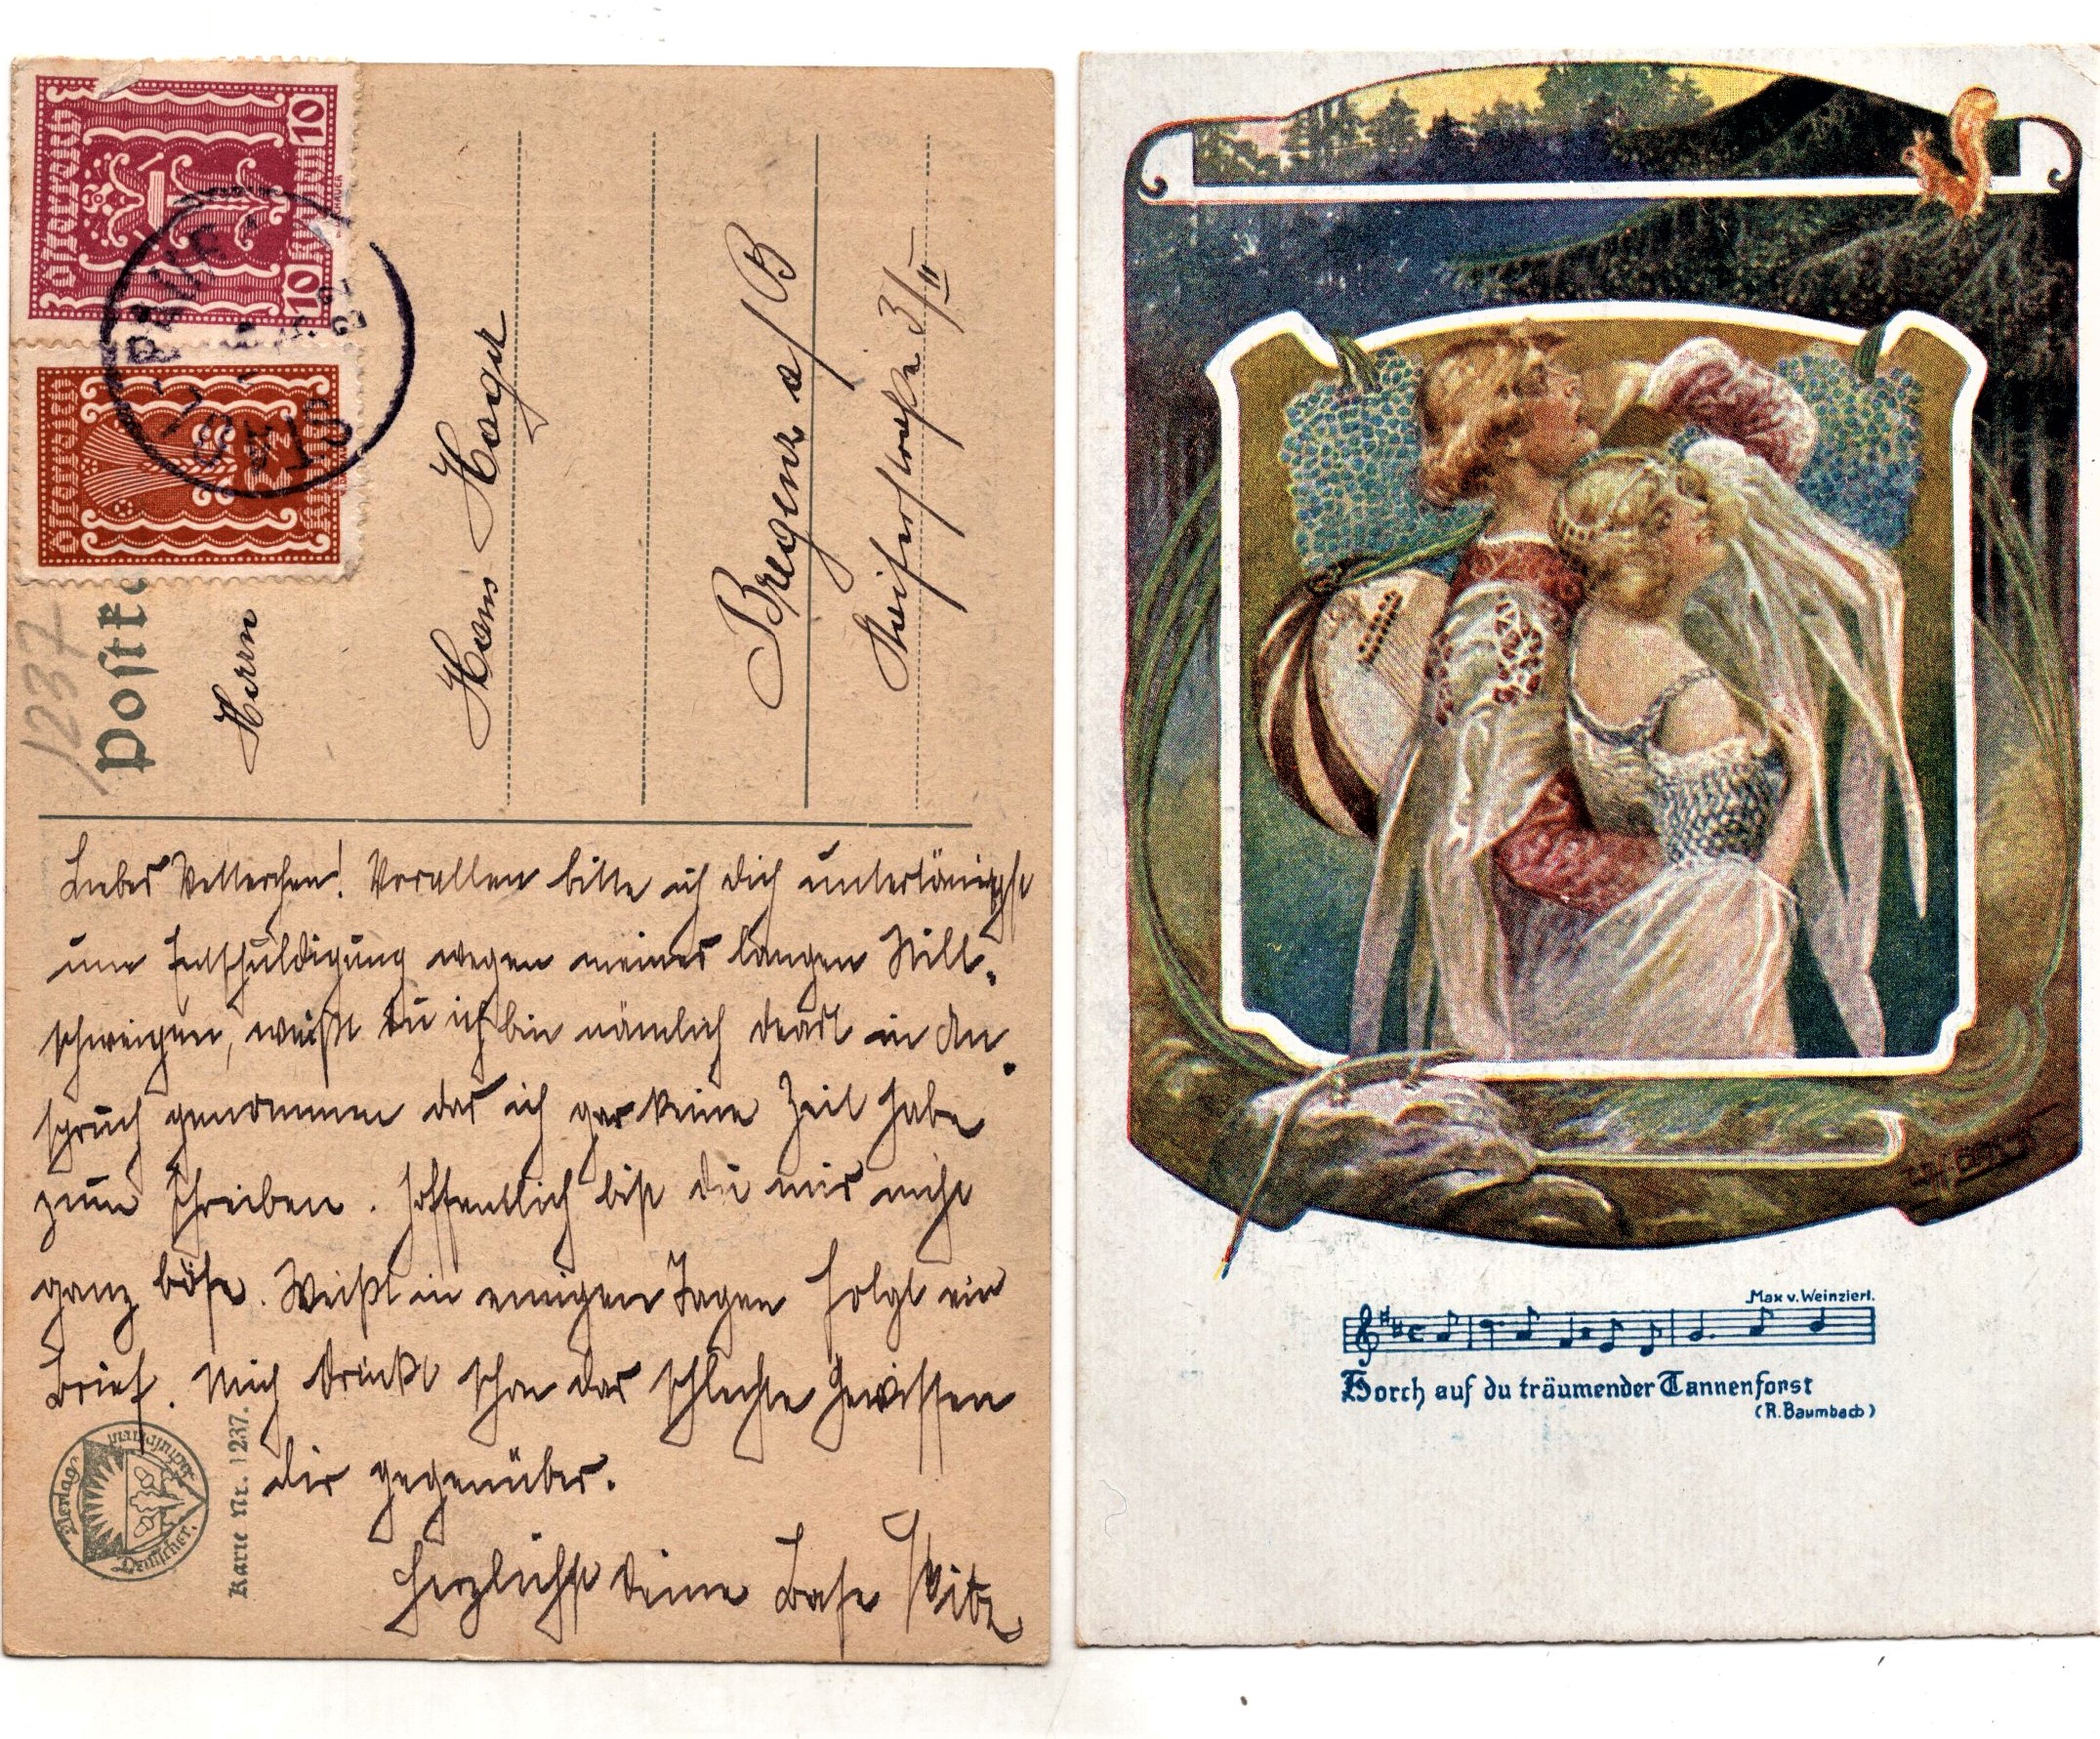 Österreich
10 Kronen 10
Österreich
Kronen
ST. PAUL
22
1237
Postk
Herrn
Hans Hager
Bregenz a/B
3/II
Liebes Vetterchen! Vorallen bitte ich dich untertänigst
um Entschuldigung wegen meines langen Still-
schweigen, weißt du ich bin nämlich derart in An-
spruch genommen das ich gar keine Zeit habe
zum schreiben. Hoffentlich bist du mir nicht
ganz böse. Weißt in einigen Tagen folgt ein
Brief. Mich drückt schon das schlechte Gewissen
dir gegenüber.
Herzlichst deine Base
Verlag Deutscher
Karte Nr. 1237.
Max v. Weinzierl.
Horch auf du träumender Tannenforst
(R. Baumbach)